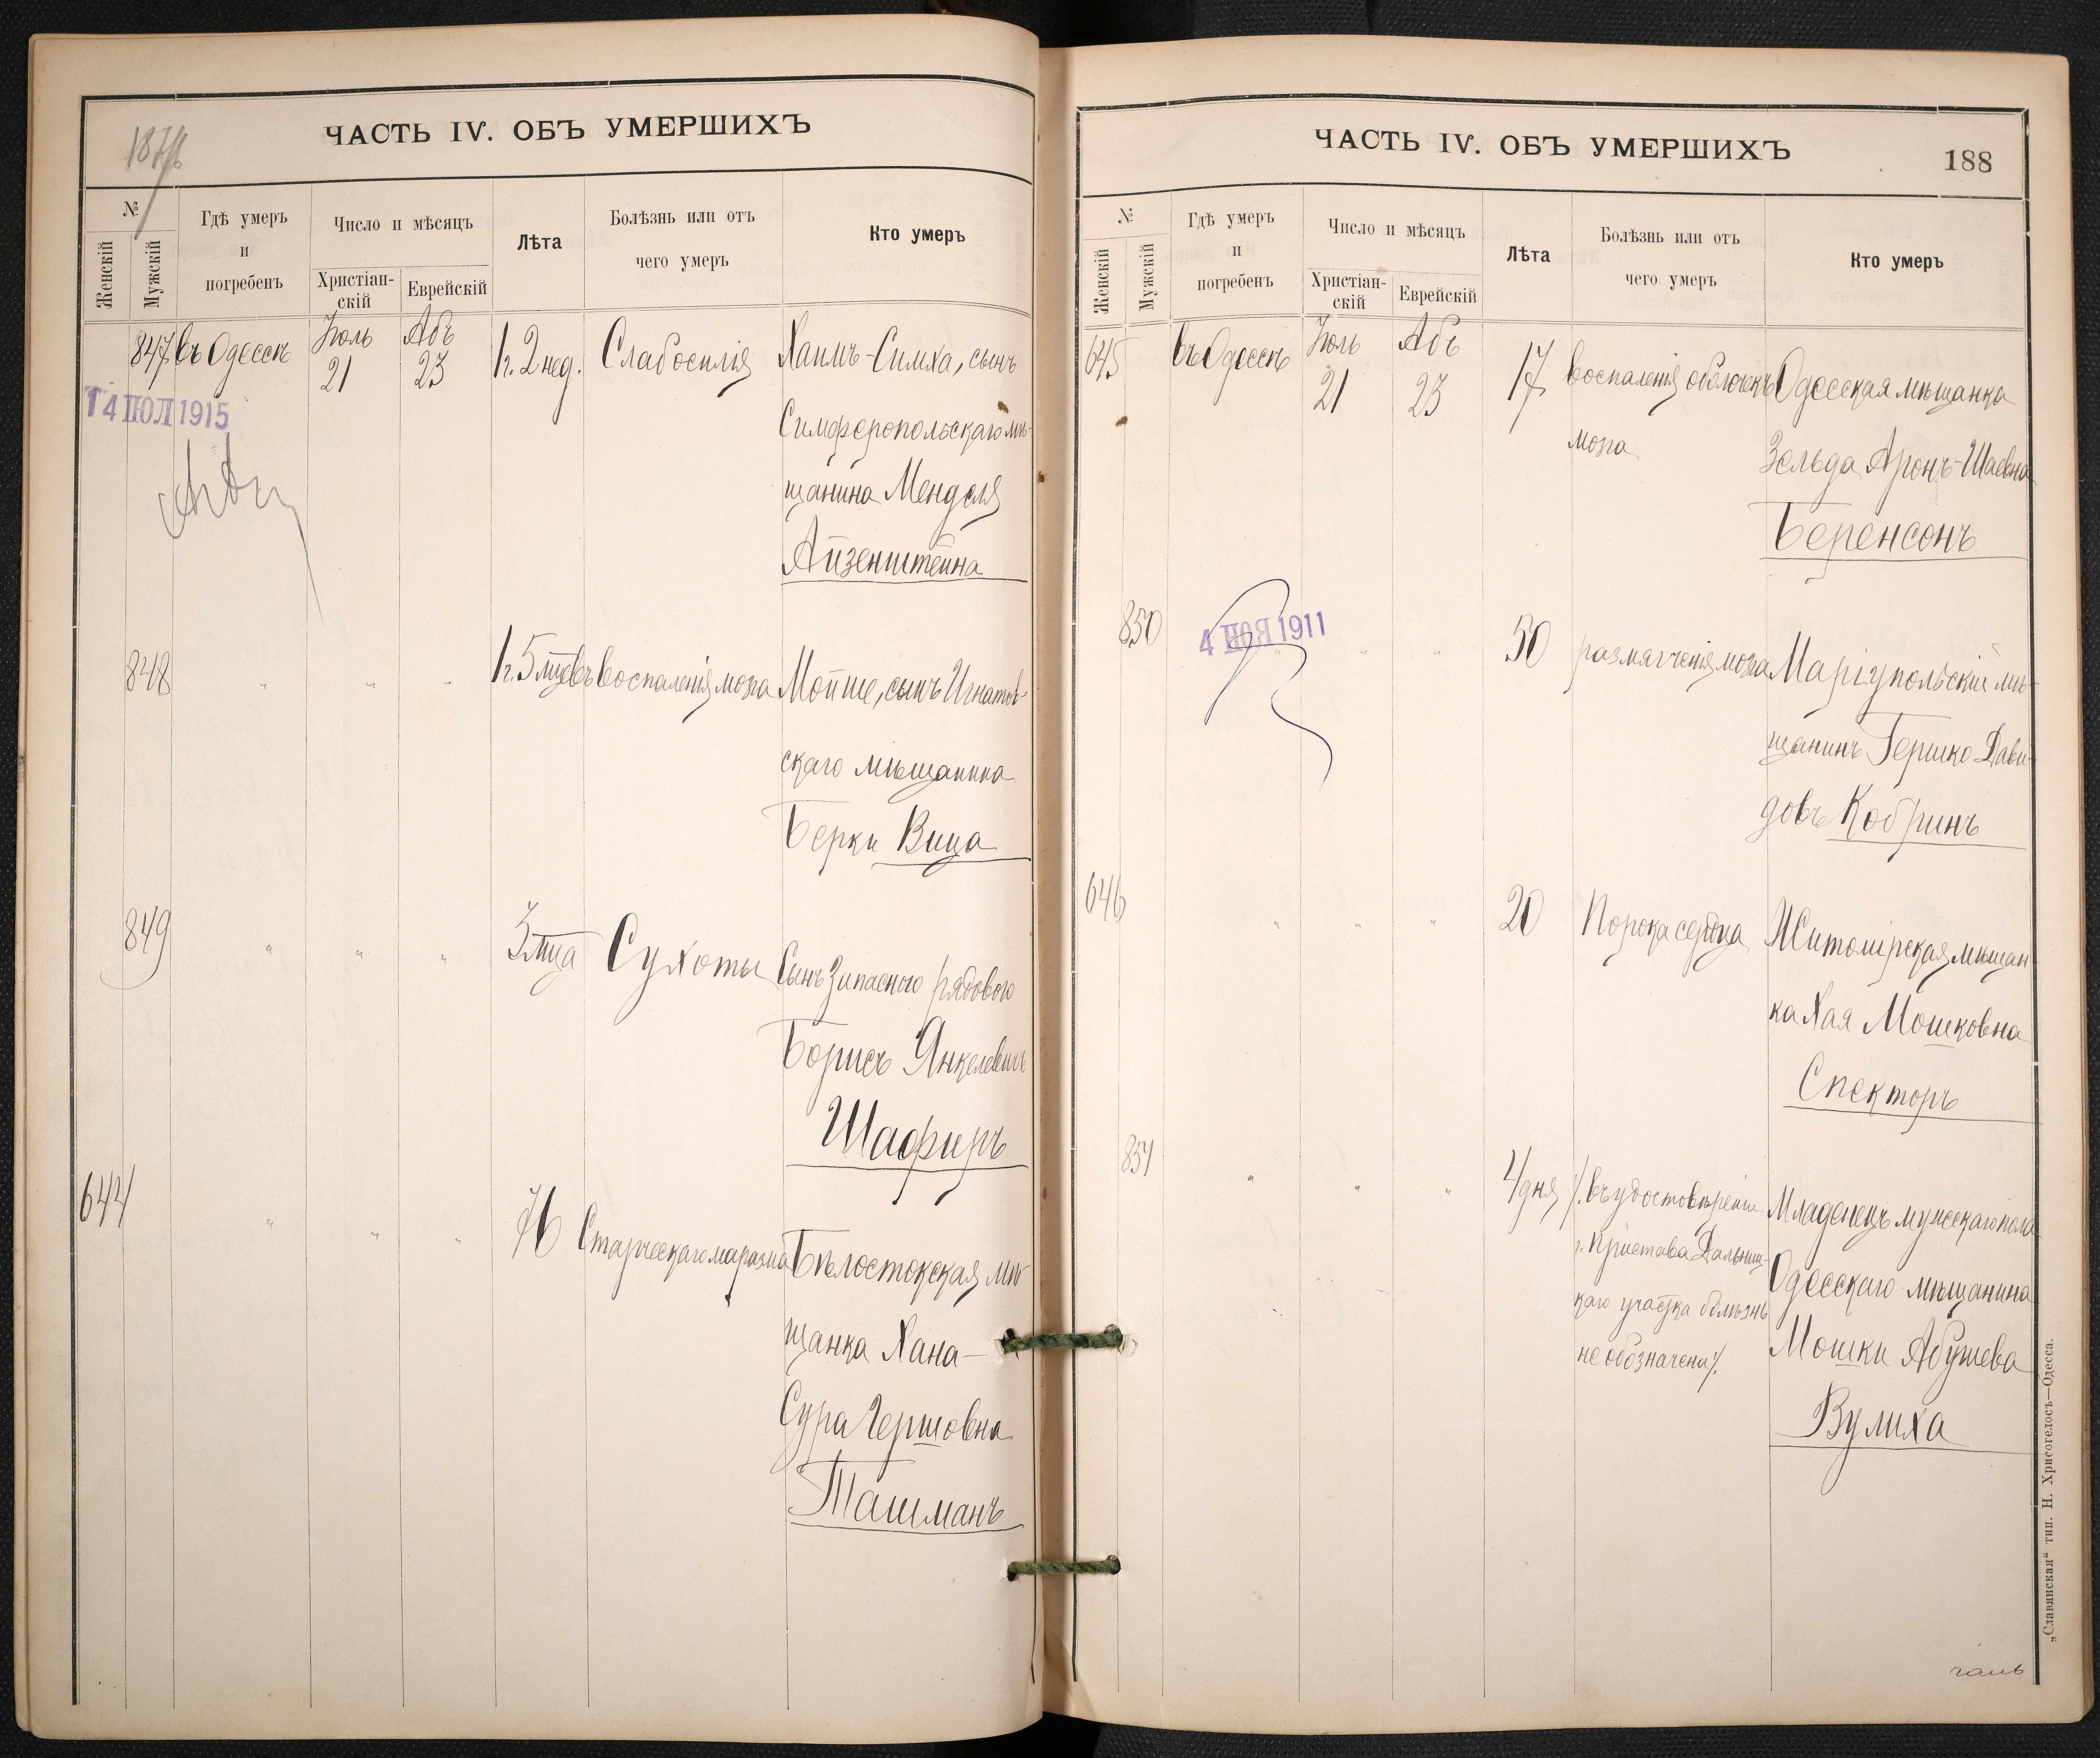 187/8
ЧАСТЬ IV. ОБЪ УМЕРШИХЪ
№
Женскій
Мужскій
Гдѣ умеръ
и
погребенъ
Число и мѣсяцъ
Христіан-
скій
Еврейскій
Лѣта
Болѣзнь или отъ
чего умеръ
Кто умеръ
847 въ Одессѣ Іюль 21 Абъ 23 1 г. 2 нед. Слабосилія Хаимъ-Симха, сынъ
14 ІЮЛ 1915
Симферопольскаго мѣ-
щанина Менделя
Айзенштейна
848 " " " 1 г. 5 мцевъ воспаленія мозга Мойше, сынъ Игнатов-
скаго мѣщанина
Берки Вица
849 " " " 3 мца Сухоты Сынъ Запаснаго рядового
Борисъ Янкелевичъ
Шафиръ
644 " " " 76 Старческаго маразма Бѣлостокская мѣ-
щанка Хана-
Сура Гершовна
Ташманъ
ЧАСТЬ IV. ОБЪ УМЕРШИХЪ
188
№
Женскій
Мужскій
Гдѣ умеръ
и
погребенъ
Число и мѣсяцъ
Христіан-
скій
Еврейскій
Лѣта
Болѣзнь или отъ
чего умеръ
Кто умеръ
645 въ Одессѣ Іюль 21 Абъ 23 17 воспаленія оболочекъ Одесская мѣщанка
мозга
Зельда Аронъ-Шаевна
Беренсонъ
850 " " 50 размягченія мозга Маріупольскій мѣ-
4 НОЯ 1911
щанинъ Гершко Дави-
довъ Кобринъ
646 " " " 20 Порока сердца Житомірская мѣщан-
ка Хая Мошковна
Спекторъ
851 " " " 4 дня /. въ удостовѣреніи Младенецъ мужескаго пола
г. Пристава Дальниц-
Одесскаго мѣщанина
каго участка болѣзнь
Мошки Абушева
не обозначена /.
Вулиха
„Славянская“ тип. Н. Хрисогелосъ—Одесса.